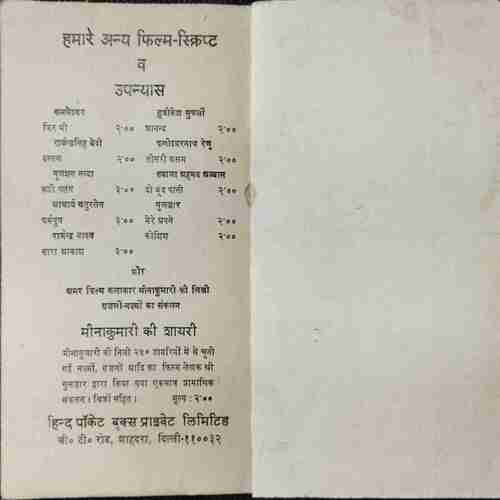 हमारे अन्य फिल्म-स्क्रिप्ट
व
उपन्यास
कमलेश्वर हृषीकेश मुकर्जी
फिर भी २'०० आनन्द २'००
राजेन्द्रसिंह बेदी फणीश्वरनाथ रेणु
दस्तक २'०० तीसरी कसम २'००
गुलशन नन्दा ख्वाजा अहमद अब्बास
कटी पतंग ३'०० दो बूंद पानी २'००
आचार्य चतुरसेन गुलज़ार
धर्मपुत्र ३'०० मेरे अपने २'००
राजेन्द्र यादव कोशिश २'००
सारा आकाश ३'००
और
अमर फिल्म कलाकार मीनाकुमारी की लिखी
ग़ज़लों-नज़्मों का संकलन
मीनाकुमारी की शायरी
मीनाकुमारी की लिखी २५० डायरियों में से चुनी
गई नज़्मों, ग़ज़लों आदि का फिल्म लेखक श्री
गुलज़ार द्वारा किया गया एकमात्र प्रामाणिक
संकलन । चित्रों सहित । मूल्य : २'००
हिन्द पॉकेट बुक्स प्राइवेट लिमिटेड
जी० टी० रोड, शाहदरा, दिल्ली-११००३२